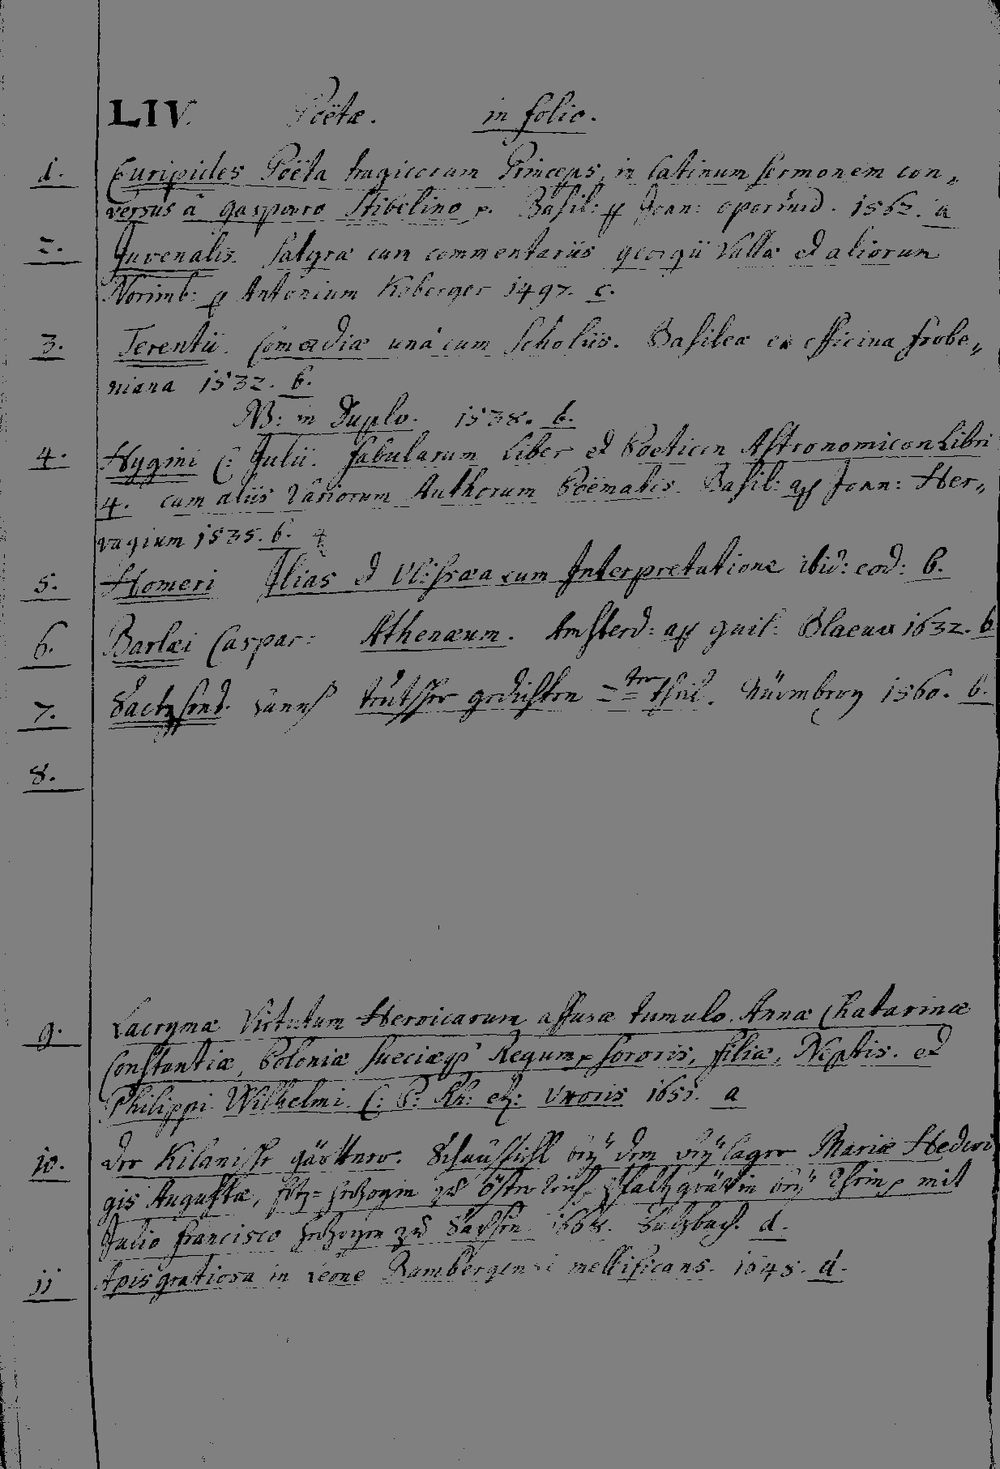 LIV. Poëtæ. in folio.
1. Euripides Poëta tragicorum Princeps, in Latinum sermonem con„
versus â Gasparo Stibelino p. Basil: p Joan: oporinū. 1562. a
2. Juvenalis. Satyræ cum commentariis georgii Vallæ et aliorum
Norimb: p Antonium Koberger 1497. c.
3. Terentii. Comœdiæ unâ cum Scholiis. Basileæ ex officina frobe„
niana 1532. b.
NB: in Duplo. 1538. b.
4. Hygini C: Julii. fabularum Liber et Poeticon Astronomicon Libri
4. cum aliis Variorum Authorum Poëmatis. Basil: ap Joan: Her„
vagium 1535. b.
5. Homeri Ilias et Ulissæa cum Interpretatione ibid: eod: b.
6. Barlæi Caspar: Athenæum. Amsterd: ap guil: Blaeuw 1632. b
7. Sachsens. Hannß teutsher gedichten ter theil. Nürmberg 1560. b.
8.
9. Lacrymæ Virtutum Heroicarum affusæ tumulo Annæ Chatarinæ
Constantiæ, Poloniæ Sueciæq Regum p sororis, filiæ, Neptis. et
Philippi Wilhelmi C: P: Rh: etc: Uxoris 1651. a
10. der Kilanische gärttner. Schauspihl bey dem beylager Mariæ Hedwi
gis Augustæ, Ertz= hertzogin zu österreich p Pfaltzgrävin bey Rhein p mit
Julio francisco hertzogen zu Sachsen 1668. Sultzbach. d.
11 Apis gratiosa in Leone Bambergensi mellificans. 1648. d.